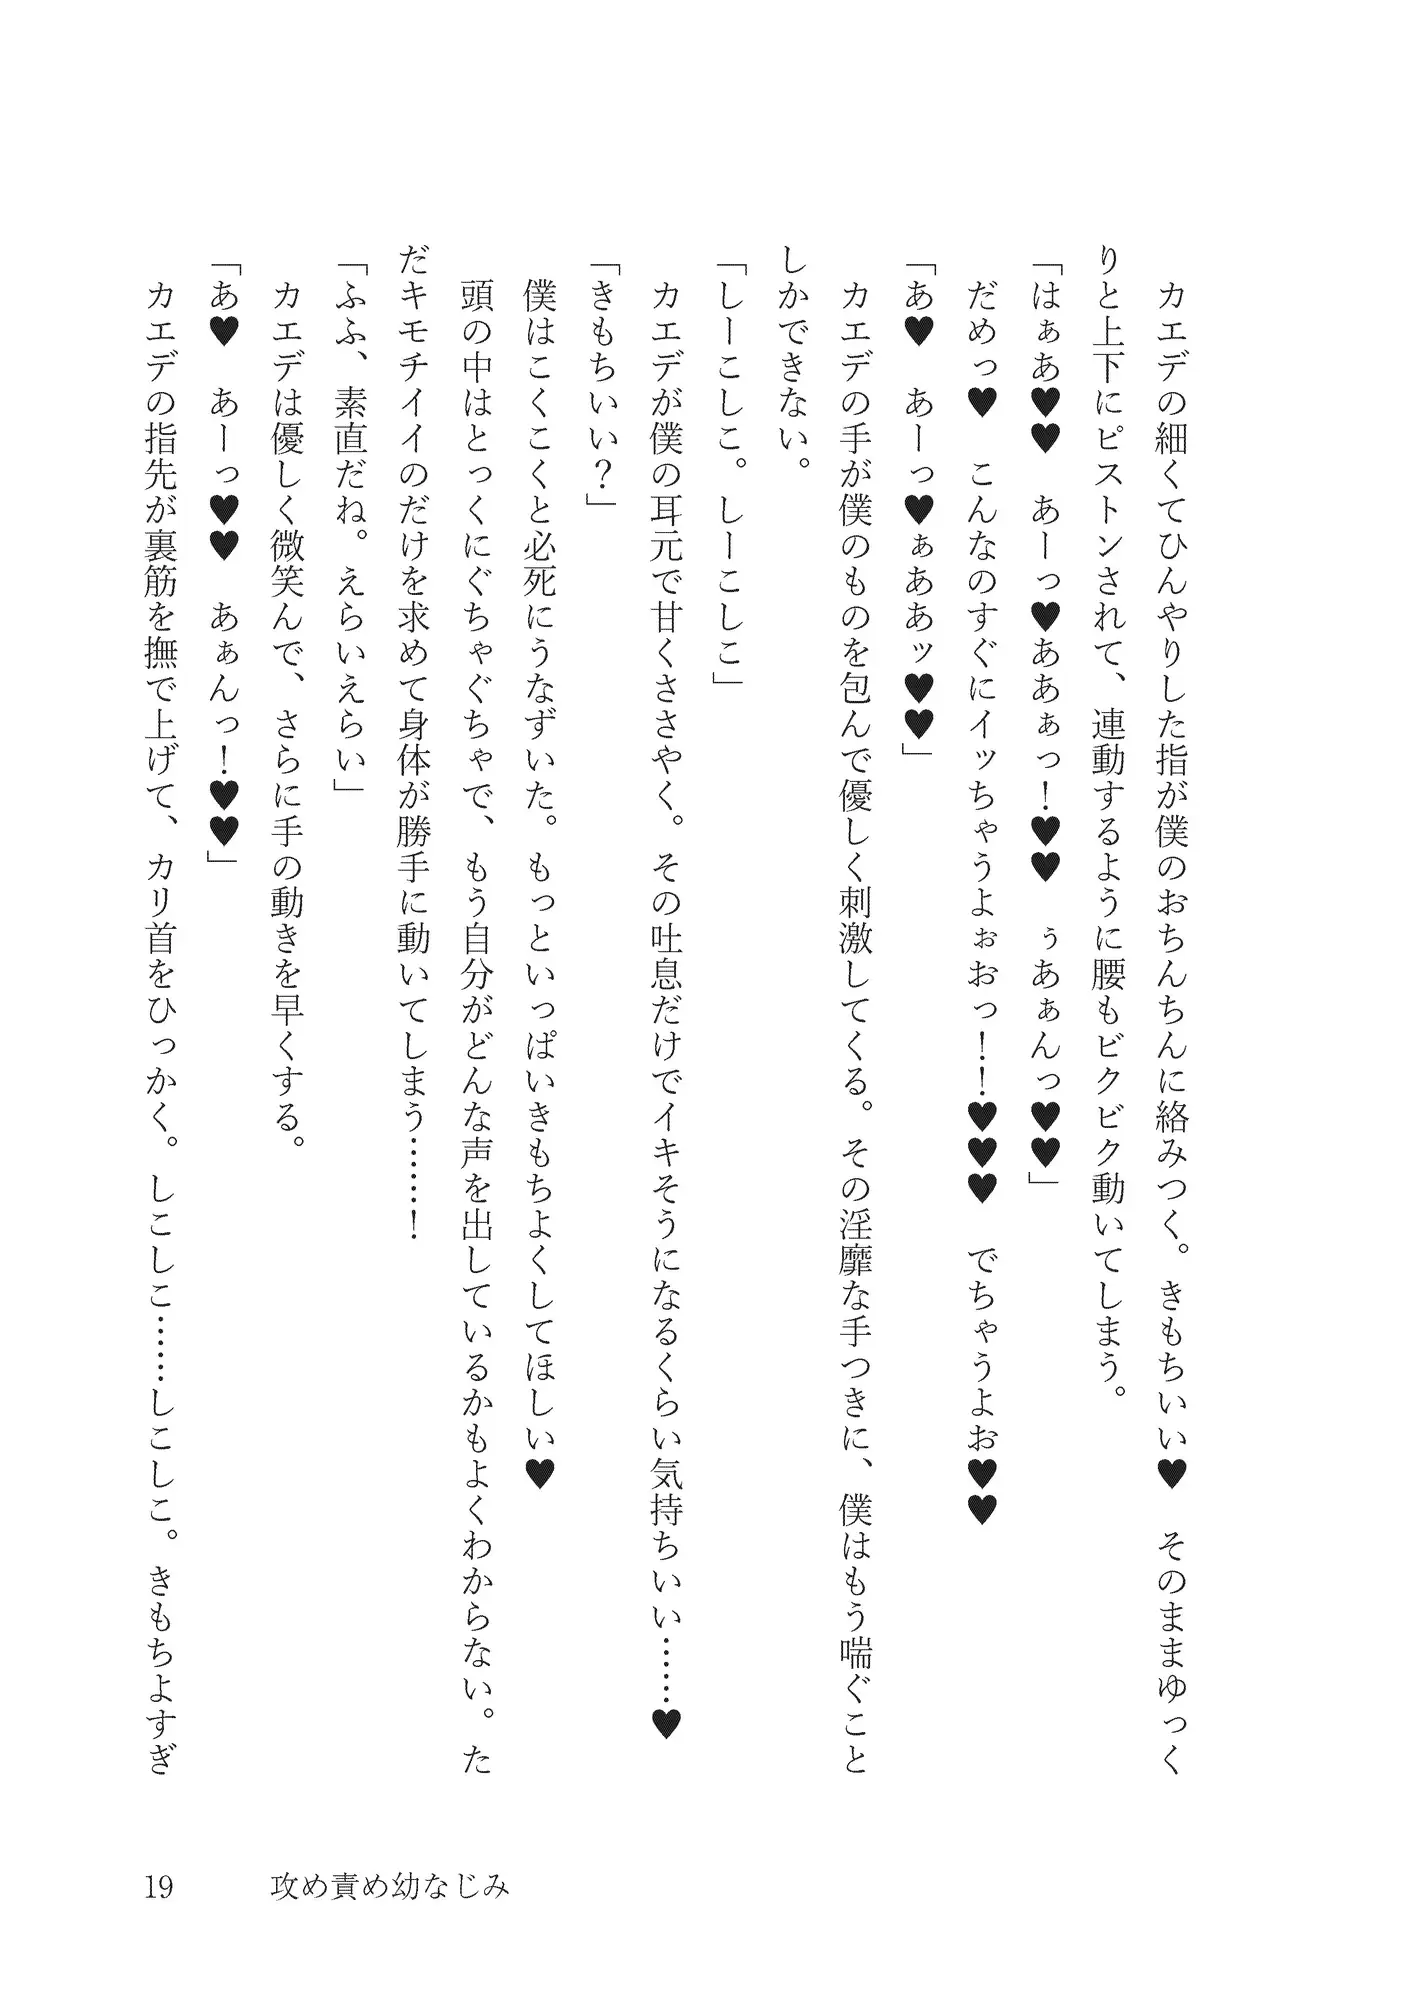 カエデの細くてひんやりした指が僕のおちんちんに絡みつく。きもちいい♥　そのままゆっく
りと上下にピストンされて、連動するように腰もビクビク動いてしまう。
「はぁあ♥♥　あーっ♥ああぁっ！♥♥　ぅあぁんっ♥♥」
だめっ♥　こんなのすぐにイッちゃうよぉおっ！！♥♥♥　でちゃうよお♥♥
「あ♥　あーっ♥ぁああッ♥♥」
カエデの手が僕のものを包んで優しく刺激してくる。その淫靡な手つきに、僕はもう喘ぐこと
しかできない。
「しーこしこ。しーこしこ」
カエデが僕の耳元で甘くささやく。その吐息だけでイキそうになるくらい気持ちいい……♥
「きもちいい？」
僕はこくこくと必死にうなずいた。もっといっぱいきもちよくしてほしい♥
頭の中はとっくにぐちゃぐちゃで、もう自分がどんな声を出しているかもよくわからない。た
だキモチイイのだけを求めて身体が勝手に動いてしまう……！
「ふふ、素直だね。えらいえらい」
カエデは優しく微笑んで、さらに手の動きを早くする。
「あ♥　あーっ♥♥　あぁんっ！♥♥」
カエデの指先が裏筋を撫で上げて、カリ首をひっかく。しこしこ……しこしこ。きもちよすぎ
19
攻め責め幼なじみ